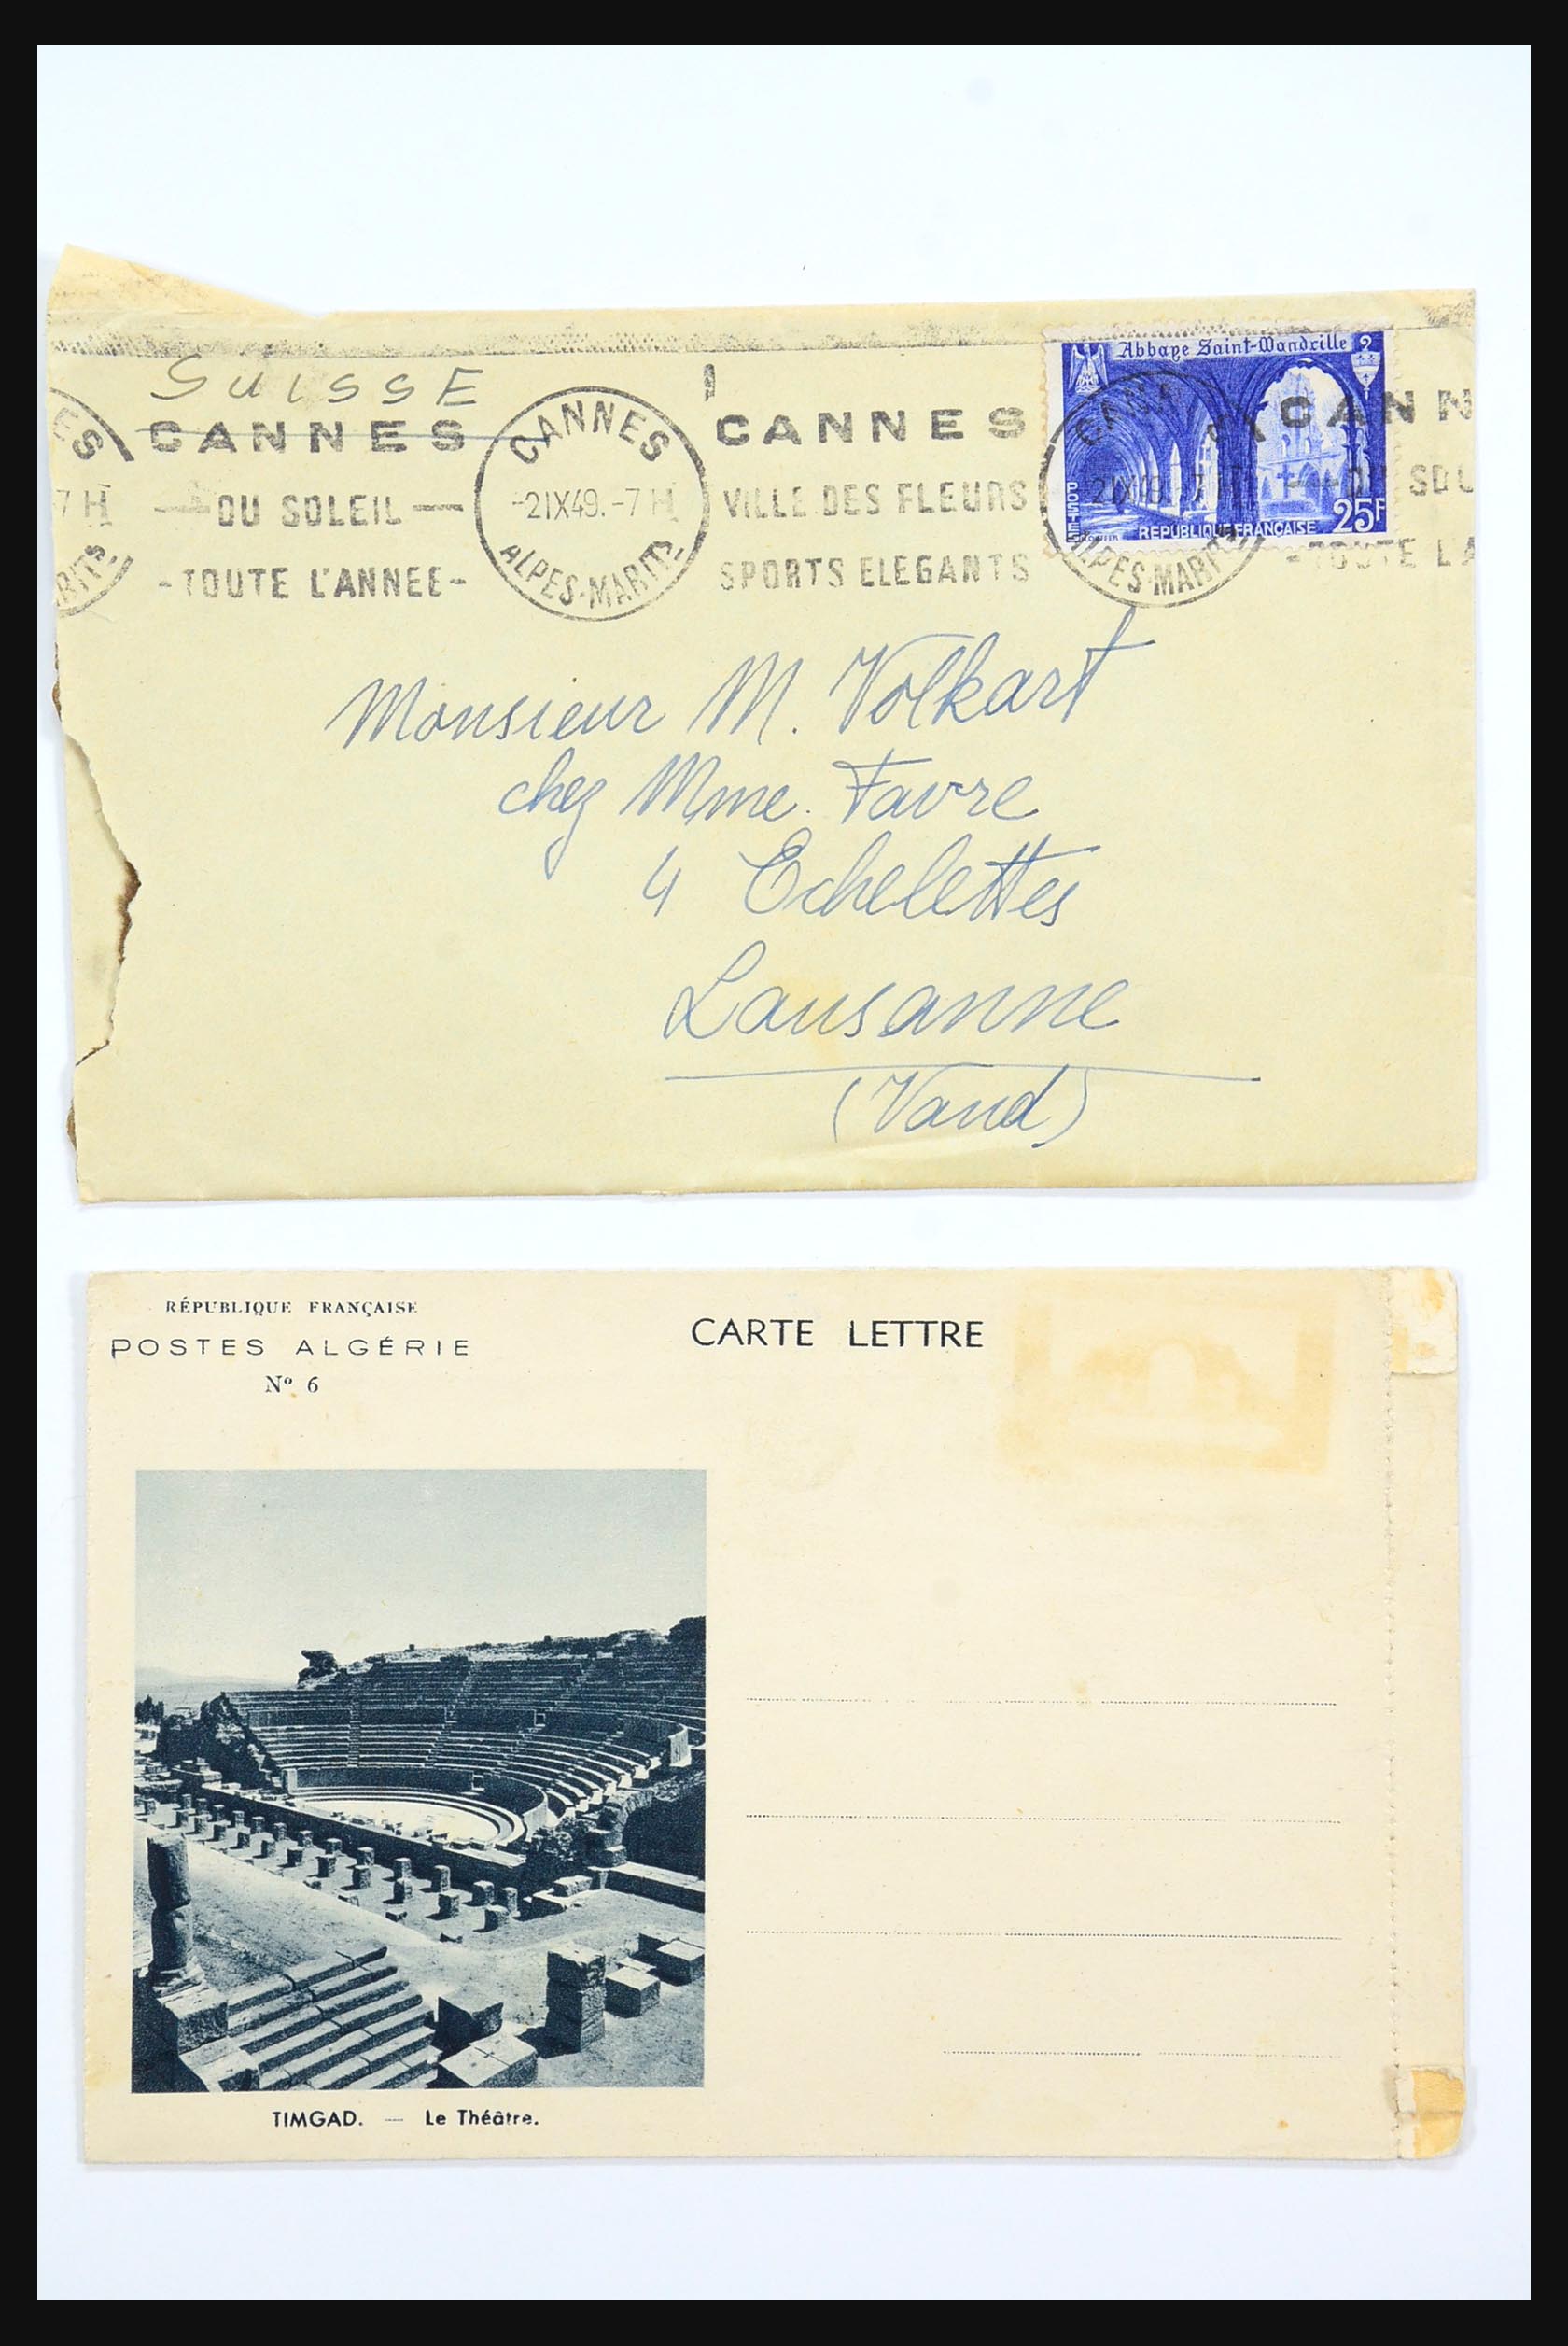 SUISSE
CANNES
DU SOLEIL
-TOUTE L'ANNEE-
CANNES
-2IX49.-7H
ALPES-MARITES
CANNES
VILLE DES FLEURS
SPORTS ELEGANTS
Abbaye Saint-Wandrille
POSTES
REPUBLIQUE FRANÇAISE
25F
ALPES-MARITES
CANN
DU SOL
-TOUTE L'A
ES
7H
Monsieur M. Volkart
chez Mme. Favre
4 Echelettes
Lausanne
(Vaud)
RÉPUBLIQUE FRANÇAISE
POSTES ALGÉRIE
Nº 6
CARTE LETTRE
TIMGAD. — Le Théâtre.